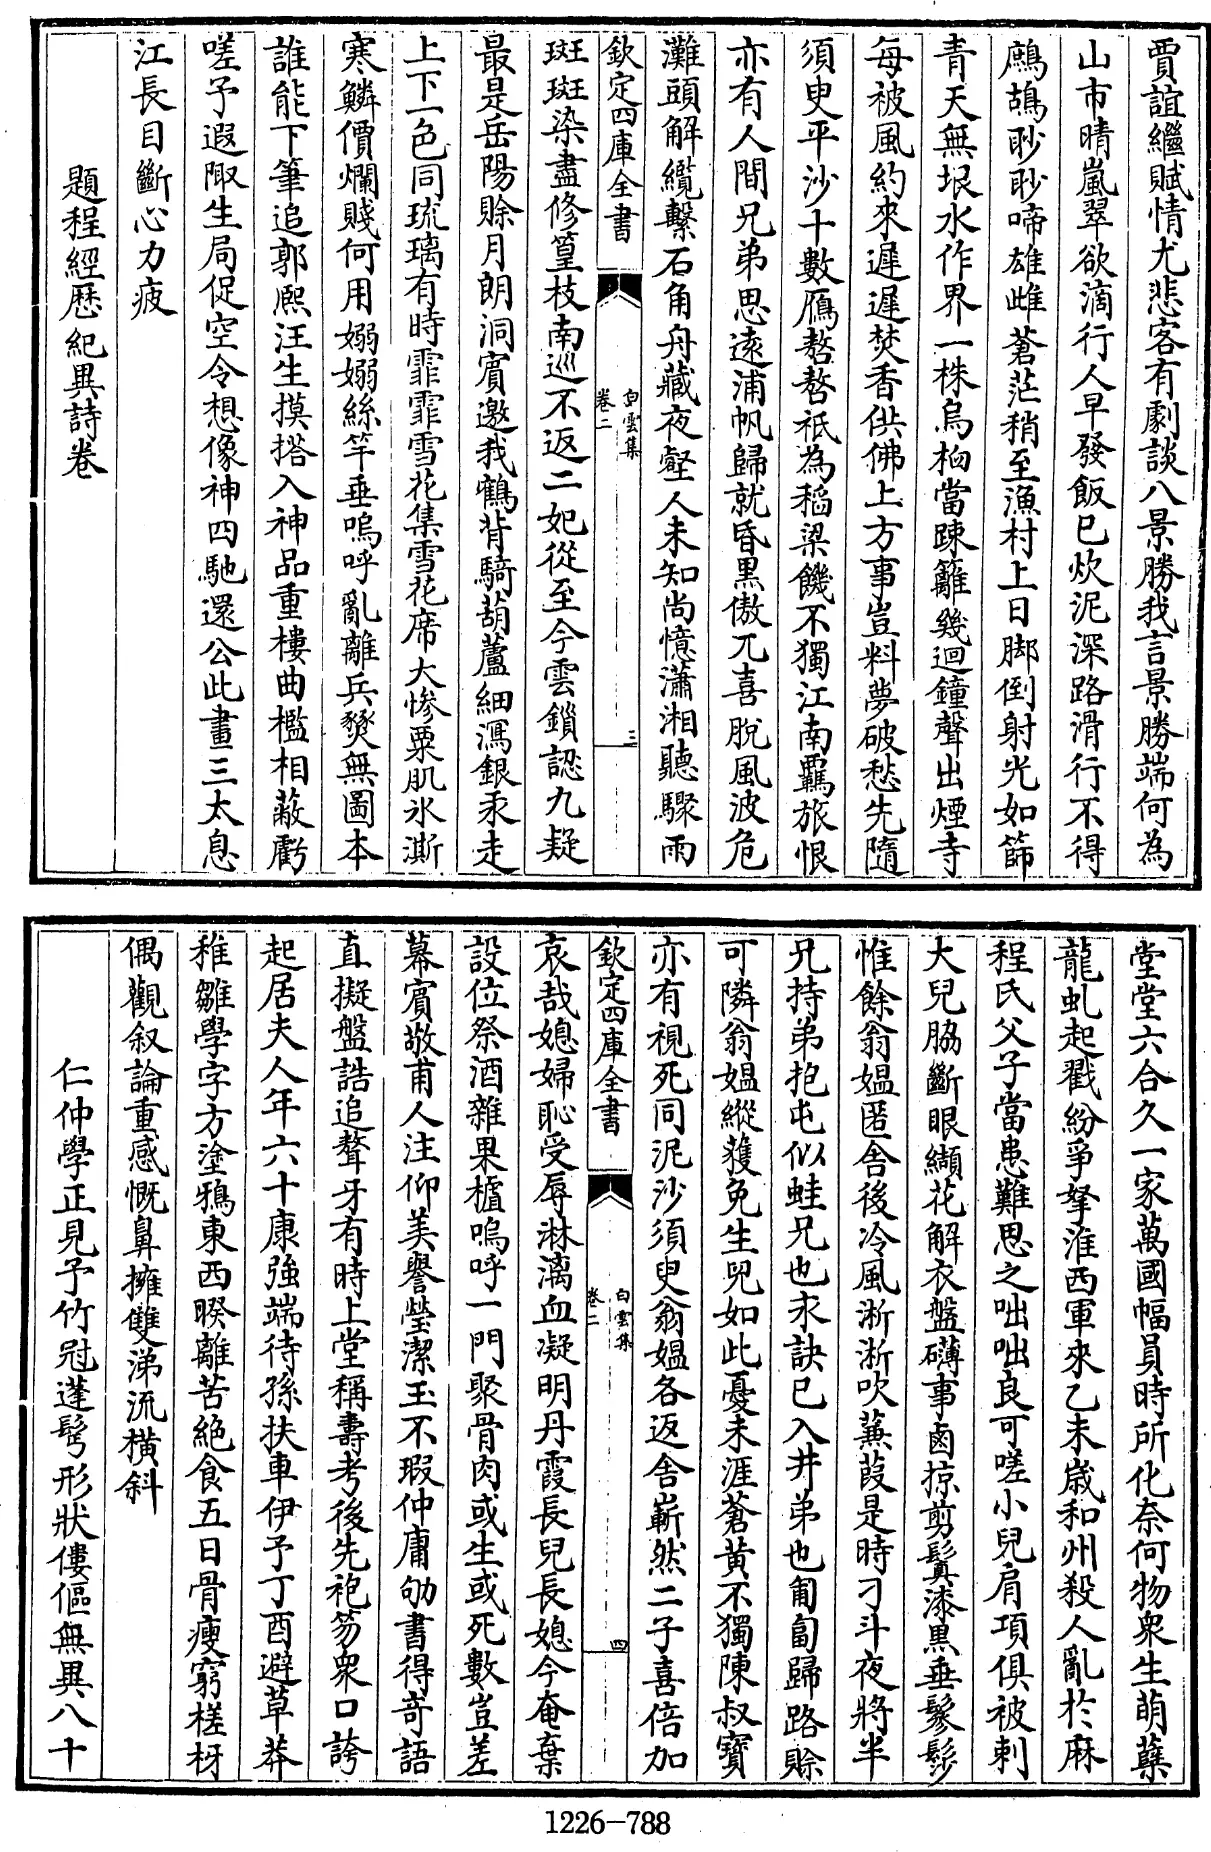 賈誼繼賦情尤悲客有劇談八景勝我言景勝端何為
山市晴嵐翠欲滴行人早發飯已炊泥深路滑行不得
鷓鴣聈聈啼雄雌蒼茫稍至漁村上日脚倒射光如篩
青天無垠水作界一株烏桕當踈籬幾迴鐘聲出煙寺
每被風約來遲遲焚香供佛上方事豈料夢破愁先隨
須臾平沙十數鴈嗸嗸祇為稻梁饑不獨江南羈旅恨
亦有人間兄弟思遠浦帆歸就昏黒傲兀喜脫風波危
灘頭解纜繫石角舟藏夜壑人未知尚憶瀟湘聽驟雨
欽定四庫全書
白雲集
卷二
三
斑斑染盡修篁枝南巡不返二妃從至今雲鎖認九疑
最是岳陽賖月朗洞賓邀我鶴背騎葫蘆細瀉銀汞走
上下一色同琉璃有時霏霏雪花集雪花席大慘粟肌氷澌
寒鱗價爛賤何用嫋嫋絲竿垂嗚呼亂離兵燹無圖本
誰能下筆追郭熈汪生摸搭入神品重樓曲檻相蔽虧
嗟予遐陬生局促空令想像神四馳還公此畫三太息
江長目斷心力疲
題程經歴紀異詩卷
堂堂六合久一家萬國幅員時所化奈何物衆生萌蘖
龍虬起戳紛爭拏淮西軍來乙未嵗和州殺人亂於麻
程氏父子當患難思之咄咄良可嗟小兒肩項俱被刺
大兒脇斷眼纈花解衣盤礴事鹵掠剪鬟漆黒垂鬖髿
惟餘翁媪匿舍後冷風淅淅吹蒹葭是時刁斗夜將半
兄持弟抱屯似蛙兄也永訣已入井弟也匍匐歸路賖
可隣翁媪縱獲免生兒如此憂未涯蒼黄不獨陳叔寳
亦有視死同泥沙須臾翁媪各返舍嶄然二子喜倍加
欽定四庫全書
白雲集
卷二
四
哀哉媳婦恥受辱淋漓血凝明丹霞長兒長媳今奄棄
設位祭酒雜果樝嗚呼一門聚骨肉或生或死數豈差
幕賓敬甫人注仰美譽瑩潔玉不瑕仲庸劬書得竒語
直擬盤誥追聱牙有時上堂稱壽考後先袍笏衆口誇
起居夫人年六十康強端待孫扶車伊予丁酉避草莽
稚雛學字方塗鴉東西暌離苦絶食五日骨瘦窮槎枒
偶觀叙論重感慨鼻擁雙涕流横斜
仁仲學正見予竹冠蓬髩形狀僂傴無異八十
1226-788